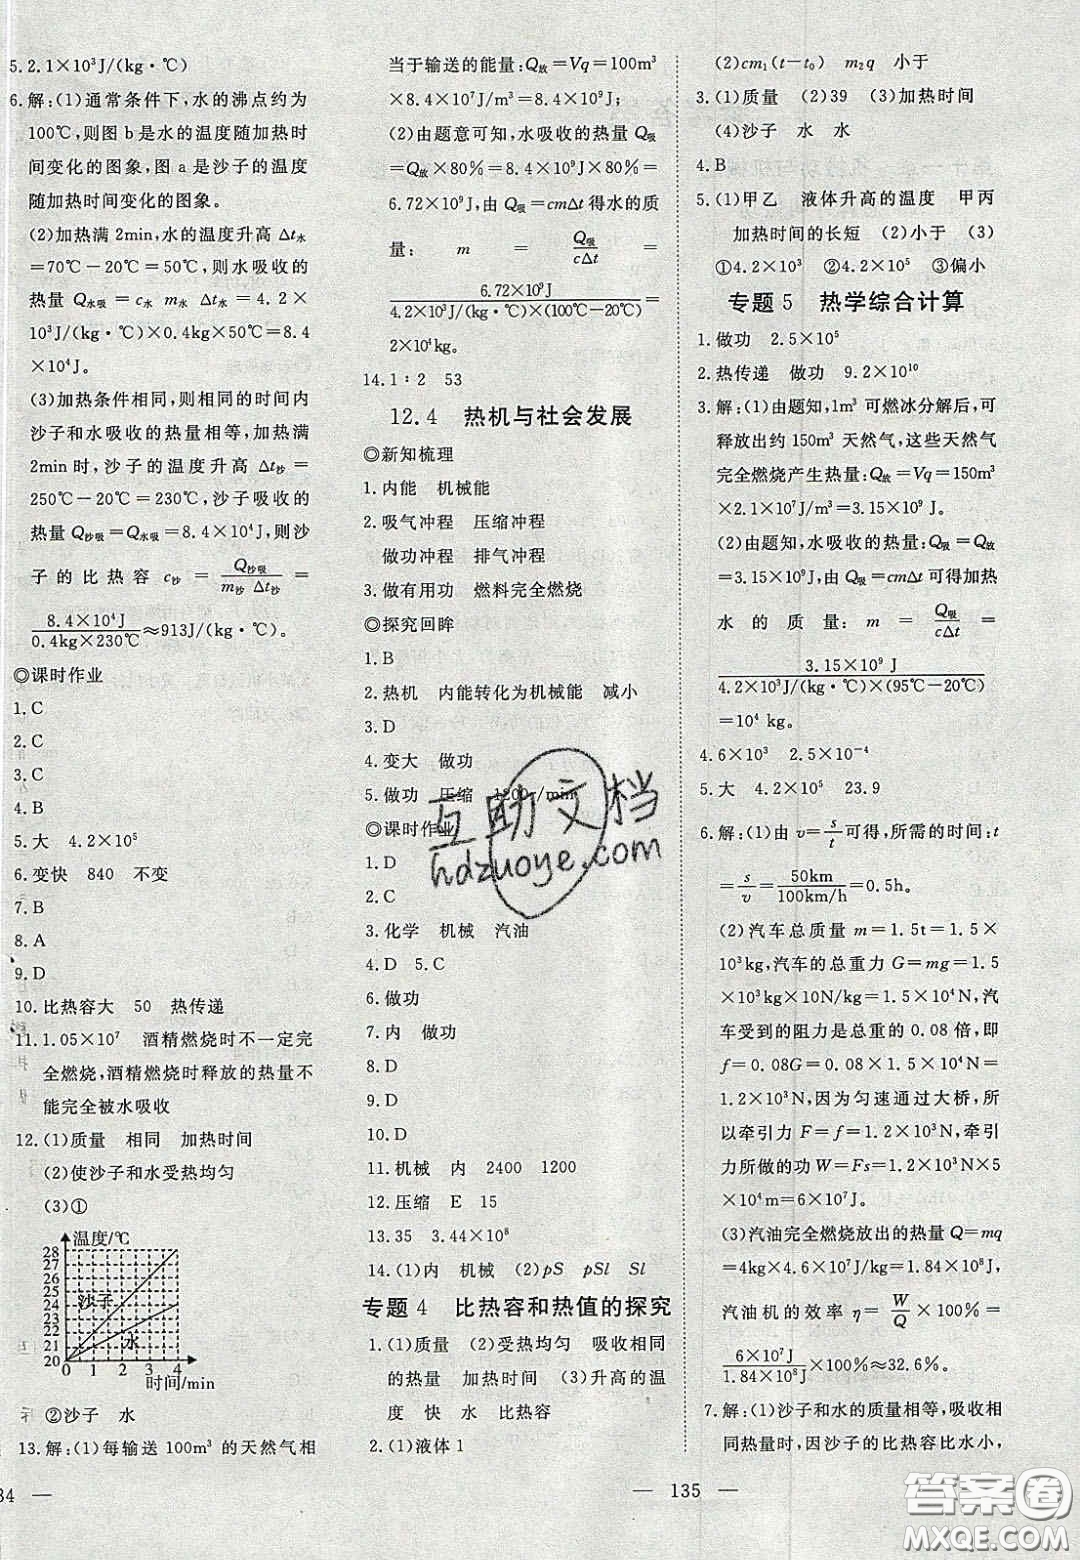 5. 2.1×10³J/(kg·℃)
6. 解:(1)通常条件下,水的沸点约为
100℃,则图b是水的温度随加热时
间变化的图象,图a是沙子的温度
随加热时间变化的图象。
(2)加热满2min,水的温度升高 Δt水
=70℃－20℃=50℃,则水吸收的
热量 Q水吸=c水 m水 Δt水=4.2×
10³J/(kg·℃)×0.4kg×50℃=8.4
×10⁴J。
(3)加热条件相同,则相同的时间内
沙子和水吸收的热量相等,加热满
2min时,沙子的温度升高 Δt沙=
250℃－20℃=230℃,沙子吸收的
热量 Q沙吸=Q水吸=8.4×10⁴J,则沙
子的比热容 c沙 = Q沙吸/(m沙 Δt沙) =
8.4×10⁴J/(0.4kg×230℃)≈913J/(kg·℃)。
◎课时作业
1. C
2. C
3. C
4. B
5. 大 4.2×10⁵
6. 变快 840 不变
7. B
8. A
9. D
10. 比热容大 50 热传递
11. 1.05×10⁷ 酒精燃烧时不一定完
全燃烧,酒精燃烧时释放的热量不
能完全被水吸收
12. (1)质量 相同 加热时间
(2)使沙子和水受热均匀
(3)①
温度/℃
28
27
26
25
24
23
22
21
20
沙子
水
0 1 2 3 4
时间/min
②沙子 水
13. 解:(1)每输送100m³的天然气相
34 —
当于输送的能量:Q放=Vq=100m³
×8.4×10⁷J/m³=8.4×10⁹J
(2)由题意可知,水吸收的热量 Q吸
=Q放×80%=8.4×10⁹J×80%=
6.72×10⁹J,由 Q吸=cmΔt得水的质
量: m = Q吸/(cΔt) =
6.72×10⁹J/(4.2×10³J/(kg·℃)×(100℃－20℃))=
2×10⁴kg。
14. 1:2 53
12.4 热机与社会发展
◎新知梳理
1. 内能 机械能
2. 吸气冲程 压缩冲程
做功冲程 排气冲程
3. 做有用功 燃料完全燃烧
◎探究回眸
1. B
2. 热机 内能转化为机械能 减小
3. D
4. 变大 做功
5. 做功 压缩 1200r/min
◎课时作业
1. D
2. C
3. 化学 机械 汽油
4. D 5. C
6. 做功
7. 内 做功
8. D
9. D
10. D
11. 机械 内 2400 1200
12. 压缩 E 15
13. 35 3.44×10⁸
14. (1)内 机械 (2)pS pSl Sl
专题4 比热容和热值的探究
1. (1)质量 (2)受热均匀 吸收相同
的热量 加热时间 (3)升高的温
度 快 水 比热容
2. (1)液体1
— 135 —
(2)cm₁(t－t₀) m₂q 小于
3. (1)质量 (2)39 (3)加热时间
(4)沙子 水 水
4. B
5. (1)甲乙 液体升高的温度 甲丙
加热时间的长短 (2)小于 (3)
①4.2×10³ ②4.2×10⁵ ③偏小
专题5 热学综合计算
1. 做功 2.5×10⁵
2. 热传递 做功 9.2×10¹⁰
3. 解:(1)由题知,1m³可燃冰分解后,可
释放出约150m³天然气,这些天然气
完全燃烧产生热量:Q放=Vq=150m³
×2.1×10⁷J/m³=3.15×10⁹J。
(2)由题知,水吸收的热量:Q吸=Q放
=3.15×10⁹J,由 Q吸=cmΔt可得加热
水的质量: m = Q吸/(cΔt) =
3.15×10⁹J/(4.2×10³J/(kg·℃)×(95℃－20℃))
=10⁴kg。
4. 6×10³ 2.5×10⁻⁴
5. 大 4.2×10⁵ 23.9
6. 解:(1)由 v=s/t可得,所需的时间:t
=s/v=50km/(100km/h)=0.5h。
(2)汽车总质量 m=1.5t=1.5×
10³kg,汽车的总重力 G=mg=1.5
×10³kg×10N/kg=1.5×10⁴N,汽
车受到的阻力是总重的0.08倍,即
f=0.08G=0.08×1.5×10⁴N=
1.2×10³N,因为匀速通过大桥,所
以牵引力 F=f=1.2×10³N,牵引
力所做的功 W=Fs=1.2×10³N×5
×10⁴m=6×10⁷J。
(3)汽油完全燃烧放出的热量 Q=mq
=4kg×4.6×10⁷J/kg=1.84×10⁸J
汽油机的效率 η = W/Q×100% =
6×10⁷J/(1.84×10⁸J)×100%≈32.6%。
7. 解:(1)沙子和水的质量相等,吸收相
同热量时,因沙子的比热容比水小,
互助文档
hdzuoye.com
答案圈
MXQE.COM